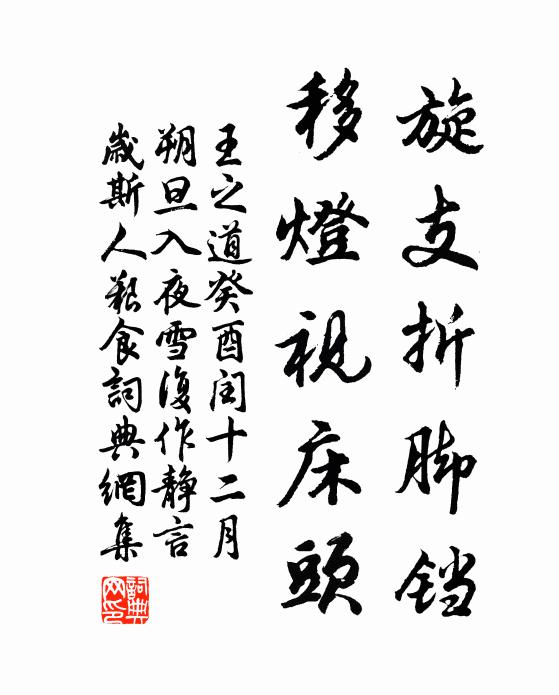 旋支折脚铛
移燈視床頭
王之道癸酉闰十二月
朔旦入夜雪復作静言
歲斯人艱食詞典網集
詞典網印